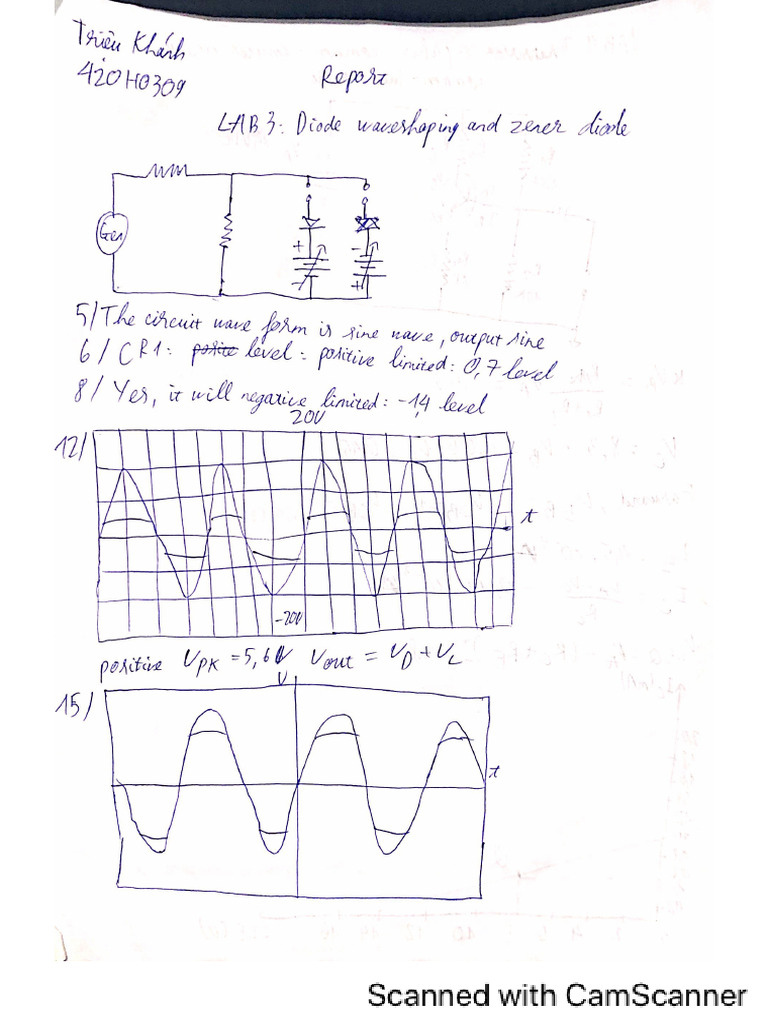 Triệu Khánh
420H0309
Report
LAB 3: Diode waveshaping and zener diode
Gen
+ -
- +
5/ The circuit wave form is sine wave, output sine
6/ CR1: level = positive limited: 0,7 level
8/ Yes, it will negative limited: -1,4 level
20V
12/
t
-20V
positive VPK = 5,6V Vout = VD + VL
V
15/
t
Scanned with CamScanner